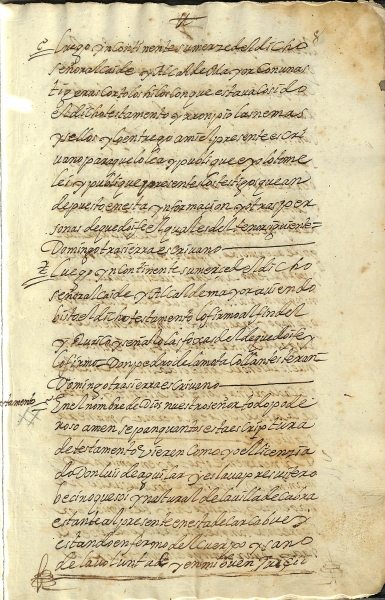 8
Luego yncontinente su merzed el dicho
señor alcaide y Alcalde Mayor con unas
tigeras corto los hilos con que estava cosido
el dicho testamento y rronpio las nemas
y sellos y lo entrego a mi el presente escri
vano para que lo lea y publique e yo lo tome
lei y publique presentes los testigos que an
depuesto en esta ynformacion y otras per
sonas de que doi fe el qual es del tenor siguiente
Domingo tras sierra escrivano
Luego yncontinente su merzed el dicho
señor alcaide y Alcalde mayor aviendo
bisto el dicho testamento lo firmo al fin del
y rubrico y en las foxas del de que doi fe y
lo firmo Don pedro de la mota collantes teran
Domingo tras sierra escrivano
testamento
En el nombre de Dios nuestro señor todo pode
roso amen sepan quantos esta escriptura
de testamento vieren como yo el lizenzia
do Don luis de aguilar y eslava presvitero
bezino que soi y natural de la villa de cabra
estante al presente en esta de Carcabuei y
estando enfermo del cuerpo y sano
de la voluntad y en mi buen